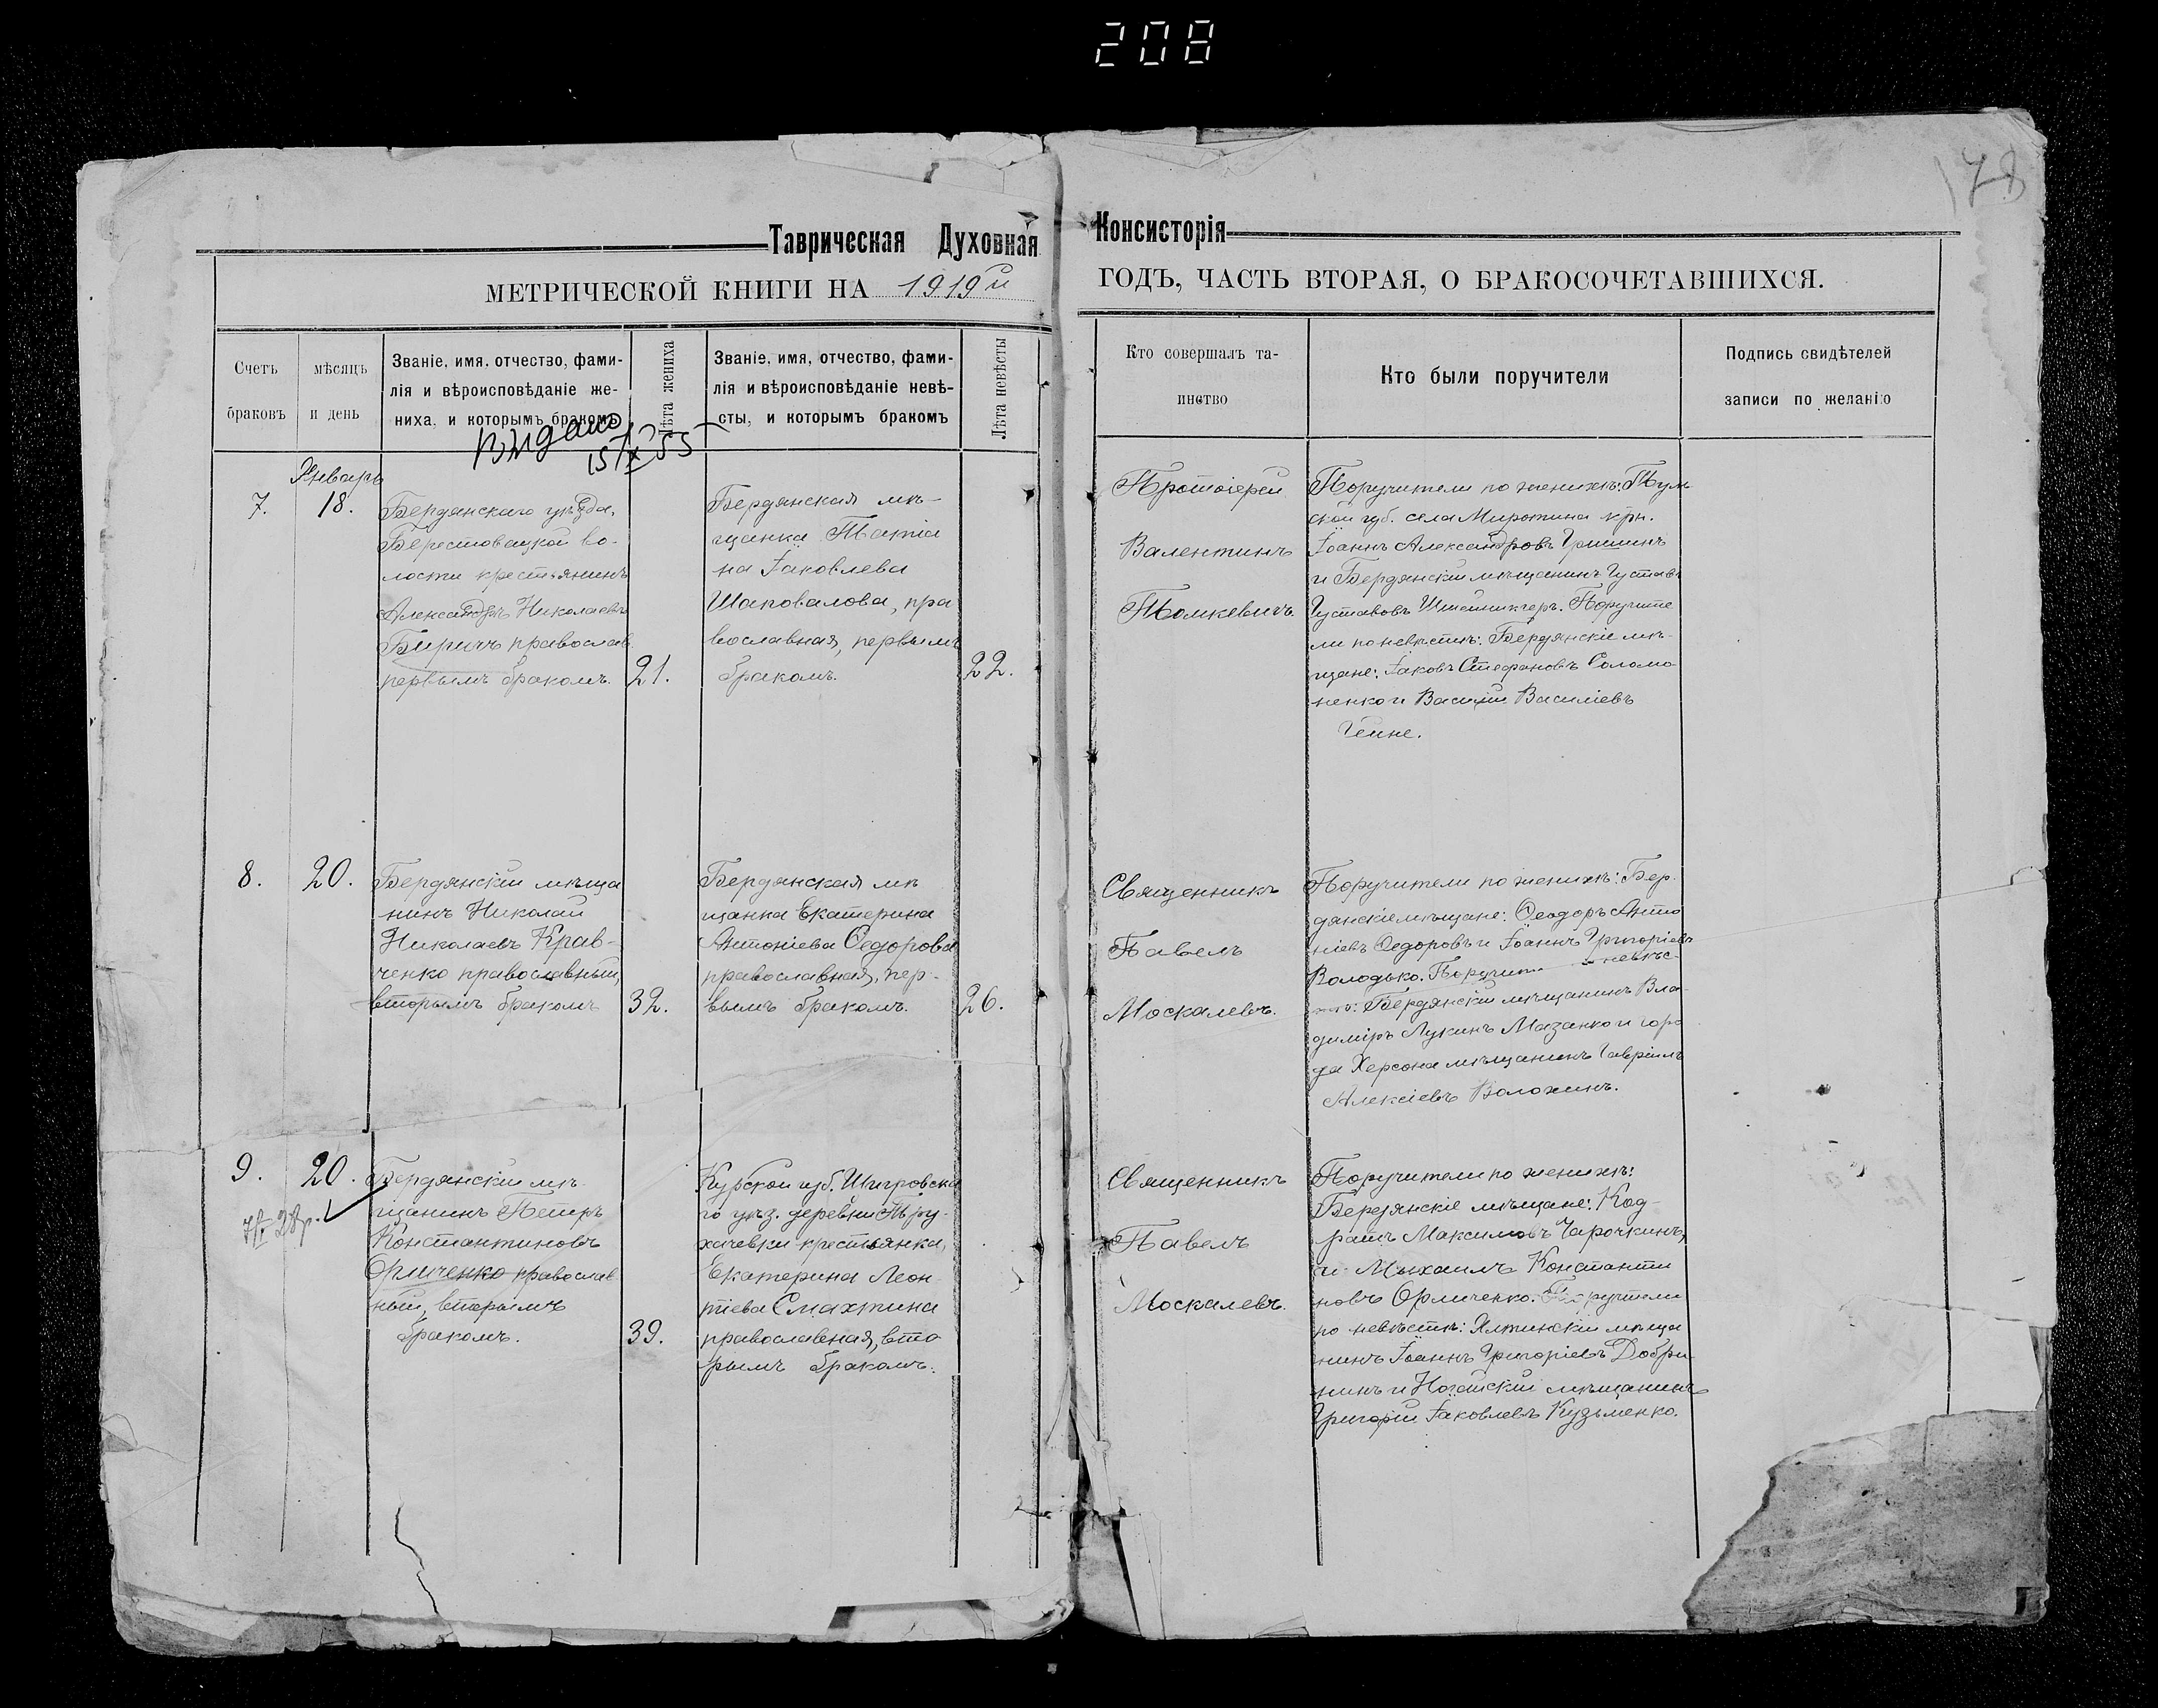 208
178
Таврическая Духовная Консисторія
МЕТРИЧЕСКОЙ КНИГИ НА 1919й ГОДЪ, ЧАСТЬ ВТОРАЯ, О БРАКОСОЧЕТАВШИХСЯ.
Счетъ
браковъ
мѣсяцъ
и день
Званіе, имя, отчество, фами-
лія и вѣроисповѣданіе же-
ниха, и которымъ бракомъ
Лѣта жениха
Званіе, имя, отчество, фами-
лія и вѣроисповѣданіе невѣ-
сты, и которымъ бракомъ
Лѣта невѣсты
Кто совершалъ та-
инство
Кто были поручители
Подпись свидѣтелей
записи по желанію
Видано
15/X 55
Январь
7.
18.
Бердянскаго уѣзда,
Берестовацкой во-
лости крестьянинъ
Александръ Николаевъ
Биричъ православ.
первымъ бракомъ.
21.
Бердянская мѣ-
щанка Татіа
на Іаковлева
Шаповалова, пра
вославная, первымъ
бракомъ.
22.
Протоіерей
Валентинъ
Томкевичъ
Поручители по женихѣ: Туль
ской губ. села Миротина крн.
Іоаннъ Александровъ Гришинъ
и Бердянскій мѣщанинъ Густавъ
Густавовъ. Поручите
ли по невѣстѣ: Бердянскіе мѣ-
щане: Іаковъ Стефановъ Солома
ненко и Василій Василіевъ
Гейне.
8.
20.
Бердянскій мѣща
нинъ Николай
Николаевъ Крав-
ченко православный,
вторымъ бракомъ
32.
Бердянская мѣ
щанка Екатерина
Антоніева Ѳедорова
православная, пер-
вымъ бракомъ.
26.
Священникъ
Павелъ
Москалевъ.
Поручители по женихѣ: Бер-
дянскіе мѣщане: Ѳеодоръ Анто
ніевъ Ѳедоровъ и Іоаннъ Григоріевъ
Володько. Поручит невѣс-
тѣ: Бердянскій мѣщанинъ Вла-
диміръ Лукинъ Мазанко и горо
да Херсона мѣщанинъ Гавріилъ
Алексіевъ Воложинъ.
9.
20.
Бердянскій мѣ-
щанинъ Петръ
Константиновъ
Орличенко православ
ный, вторымъ
бракомъ.
39.
Курской губ. Щигровска
го уѣз. деревни
хачевки крестьянка,
Екатерина Леон-
тіева Смахтина
православная, вто
рымъ бракомъ.
Священникъ
Павелъ
Москалевъ.
Поручители по женихѣ:
Бердянскіе мѣщане: Код-
ратъ Максимовъ Чарочкинъ,
и Михаилъ Константи
новъ Орличенко. Поручители
по невѣстѣ: Ялтинскій мѣща
нинъ Іоаннъ Григоріевъ Добри-
нинъ и Ногайскій мѣщанинъ
Григорій Іаковлевъ Кузьменко.